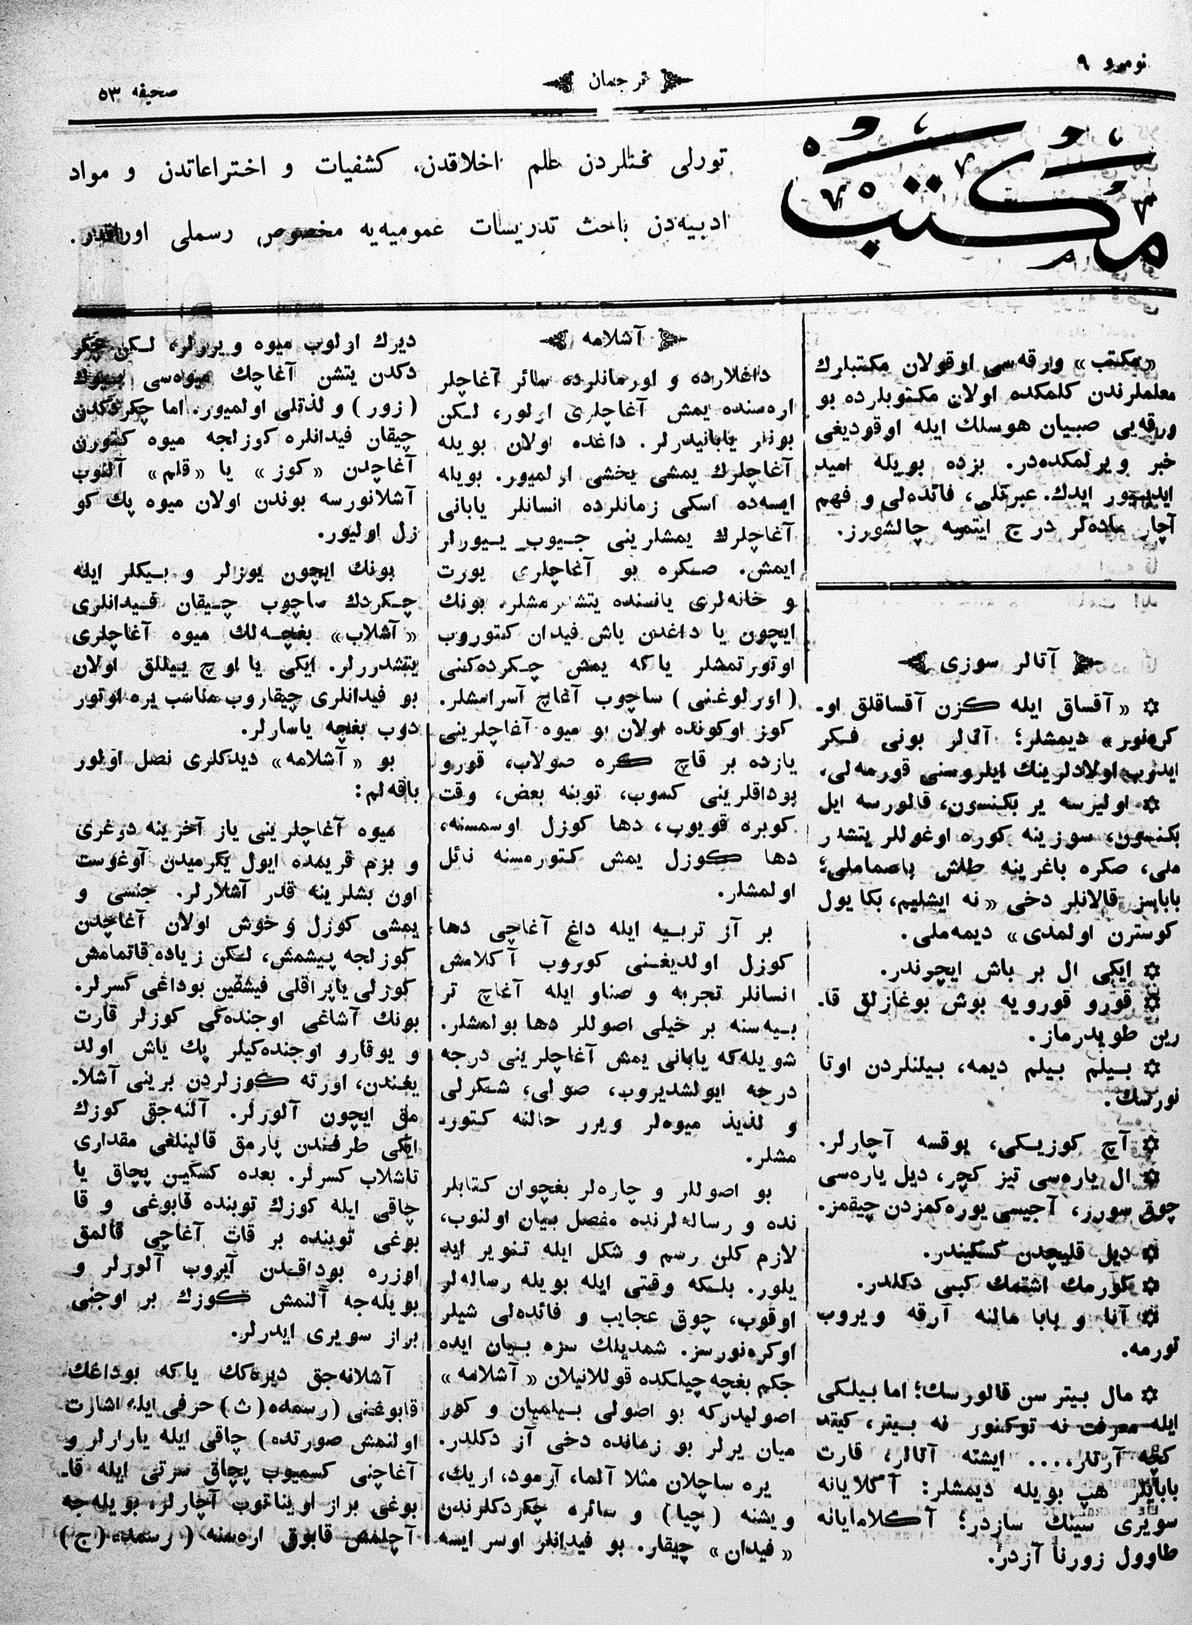 نومرو ٩
ترجمان
صحیفه ٥٣
مكتب
تورلی فنلردن علم اخلاقدن، كشفیات و اختراعاتدن و مواد
ادبیه‌دن باحث تدریسات عمومیه‌یه مخصوص رسملی اوراقدر.
«مكتب» ورقه‌سی اوقولان مكتبلرك
معلملرندن كلمكده اولان مكتوبلرده بو
ورقه‌یی صبیان هوسلك ایله اوقودیغی
خبر ویرلمكده‌در. بزده بویله امید
ایدیـور ایدك. عبرتلی، فائده‌لی و فهم
آچار ماده‌لر درج ایتمیه چالشورز.
آتالر سوزی
۞ «آقساق ایله كزن آقساقلق او-
كره‌نور» دیمشلر؛ آتالر بونی فكر
ایدوب اولادلرینك ایلروسنی قورمه‌لی،
۞ اولیرسه یر بكنسون، قالورسه ایل
بكنسون، سوزینه كوره اوغوللر یتشدر
ملی، صكره باغرینه طاش باصماملی؛
باباسز قالانلر دخی «نه ایشلیم، بكا یول
كوسترن اولمدی» دیمه‌ملی.
۞ ایكی ال بر باش ایچوندر.
۞ قورو قورویه بوش بوغازلق قا-
رین طویدرماز.
۞ بـیلم بیلم دیمه، بیلنلردن اوتا
نورسك.
۞ آچ كوزیـكی، یوقسه آچارلر.
۞ ال یاره‌سی تیز كچر، دیل یاره‌سی
چوق سورر، آجیسی یوره‌كمزدن چیقمز.
۞ دیل قلیچدن كسكیندر.
۞ كورمك اشتمك كبی دكلدر.
۞ آنا و بابا مالنه آرقه ویروب
تورمه.
۞ مال بیتر سن قالورسك؛ اما بیلكی
ایله معرفت نه توكنور نه بیتر، كیتد
كچه آرتار.... ایشته آتالر، قارت
بابایلر هپ بویله دیمشلر: آكلایانه
سویری سینك سازدر؛ آكلامایانه
طاوول زورنا آزدر.
آشلامه
داغلارده و اورمانلرده سائر آغاچلر
اره‌سنده یمش آغاچلری اولور، لـكن
بونلر یابانیدرلر. داغده اولان بویله
آغاچلرك یمشی یخشی اولمیور. بویله
ایسه‌ده اسكی زمانلرده انسانلر یابانی
آغاچلرك یمشلرینی جـیوب یـیورلر
ایمش. صـكره بو آغاچلری یورت
و خانه‌لری یانسنده یتشدرمشلر. بونك
ایچون یا داغدن یاش فیدان كتوروب
اوتورتمشلر یاكه یمش چـكرده‌كنی
(اورلوغنی) ساچوب آغاچ آسرامشلر.
كوز اوكونده اولان بو میوه آغاچلرینی
یازده بر قاچ كره صولاب، قورو
بوداقلرینی كسوب، توبنه بعض، وقت
كوبره قویوب، دها كوزل اوسمسنه،
دها كوزل یمش كتورمسنه نائل
اولمشلر.
بر آز تربـیه ایله داغ آغاچی دها
كوزل اولدیغـنی كوروب آكلامش
انسانلر تجربه و صناو ایله آغاچ تر
بـیه‌سنه بر خیلی اصوللر دها بولمشلر.
شویله‌كه یابانی یمش آغاچلرینی درجه
درجه ایولشدیروب، صولی، شـكرلی
و لذیذ میوه‌لر ویرر حالنه كتورد
مشلر.
بو اصوللر و چاره‌لر بغچوان كتابلر
نده و رساله‌لرنده مفصل بیان اولنوب،
لازم كلن رسم و شكل ایله تنویر اید
یلور. بلـكه وقتی ایله بویله رساله‌لر
اوقوب، چوق عجایب و فائده‌لی شیلر
اوكره‌نورسز. شمدیلك سزه بـیان ایده
جكم بغچه‌چیلكده قوللانیلان «آشلامه»
اصولیدركه بو اصولی بـیلمیان و كور
میان یرلر بو زمانده دخی آز دكلدر.
یره ساچلان مثلا آلما، آرمود، اریك،
ویشنه (چیا) و سائره چكردكلرندن
«فیدان» چیقار. بو فیدانلر اوسر ایسه
دیرك اولوب میوه ویررلر، لـكن چكر
دكدن یتشن آغاچك میوه‌سی بـیوك
(زور) و لذتلی اولمیور. اما چكردكدن
چیقان فیدانلره كوزلجه میوه كتورن
آغاچدن «كوز» یا «قلم» آلنوب
آشلانورسه بوندن اولان میوه پك كو
زل اولیور.
بونك ایچون یوزلر و بـیكلر ایله
چـكردك ساچوب چـیقان فـیدانلری
«آشلاب» بغچـه‌لك میوه آغاچلری
یتشدررلر. ایكی یا اوچ یـیللق اولان
بو فیدانلری چیقاروب مناسب یره اوتور
دوب بغچه یاسارلر.
بو «آشلامه» دیدكلری نصل اولور
باقه‌لم:
میوه آغاچلرینی یاز آخرینه دوغری
و بزم قریمده ایول یكرمیدن آوغوست
اون بشلرینه قدر آشلارلر. جنسی و
یمشی كوزل و خوش اولان آغاچدن
كوزلجه پیشمش، لـكن زیاده قاتمامش
كوزلی یاپراقلی فیشقین بوداغی كسرلر.
بونك آشاغی اوجنده‌كی كوزلر قارت
و یوقارو اوجنده‌كیلر پك یاش اولد
یغندن، اورته كوزلردن برینی آشلا-
مق ایچون آلورلر. آلنه‌جق كوزك
ایكی طرفندن پارمق قالینلغی مقداری
تاشلاب كسرلر. بعده كسكین پچاق یا
چاقی ایله كوزك توبنده قابوغی و قا
بوغی توبنده بر قات آغاچی قالمق
اوزره بوداقـدن آیروب آلورلر و
بویله‌جه آلنمش كوزك بر اوجنی
براز سویری ایدرلر.
آشلانه‌جق دیره‌كك یاكه بوداغك
قابوغنی (رسمده (ث) حرفی ایله اشارت
اولنمش صورتده) چاقی ایله یارارلر و
آغاچنی كسمیوب پچاق سرتی ایله قا-
بوغی براز اویناتوب آچارلر، بویله‌جه
آچلمش قابوق اره‌سنه (رسمده، (ج)